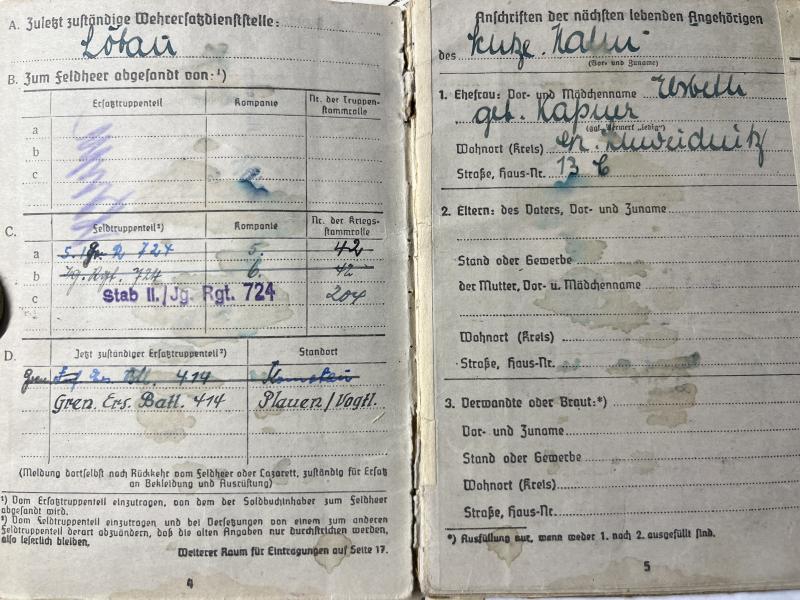 A. Zuletzt zuständige Wehrersatzdienststelle:
Löbau
B. Zum Feldheer abgesandt von:¹)
Ersatztruppenteil Kompanie Nr. der Truppenstammrolle
a
b
c
C. Feldtruppenteil²) Kompanie Nr. der Kriegsstammrolle
a 724 5. 42
b Jg. Rgt. 724 6. 42
c Stab II./Jg. Rgt. 724 204
D. Jetzt zuständiger Ersatztruppenteil²) Standort
Gren. Btl. 414
Gren. Ers. Batl. 414 Plauen/Vogtl.
(Meldung dortselbst nach Rückkehr vom Feldheer oder Lazarett, zuständig für Ersatz
an Bekleidung und Ausrüstung)
¹) Vom Ersatztruppenteil einzutragen, von dem der Soldbuchinhaber zum Feldheer
abgesandt wird.
²) Vom Feldtruppenteil einzutragen und bei Versetzungen von einem zum anderen
Feldtruppenteil derart abzuändern, daß die alten Angaben nur durchstrichen werden,
also leserlich bleiben.
Weiterer Raum für Eintragungen auf Seite 17.
4
Anschriften der nächsten lebenden Angehörigen
des
(Vor- und Zuname)
1. Ehefrau: Vor- und Mädchenname Elsbeth
geb.
(ggf. Vermerk „ledig")
Wohnort (Kreis) Schweidnitz
Straße, Haus-Nr. 13
2. Eltern: des Vaters, Vor- und Zuname
Stand oder Gewerbe
der Mutter, Vor- u. Mädchenname
Wohnort (Kreis)
Straße, Haus-Nr.
3. Verwandte oder Braut:*)
Vor- und Zuname
Stand oder Gewerbe
Wohnort (Kreis)
Straße, Haus-Nr.
*) Ausfüllung nur, wenn weder 1. noch 2. ausgefüllt sind.
5